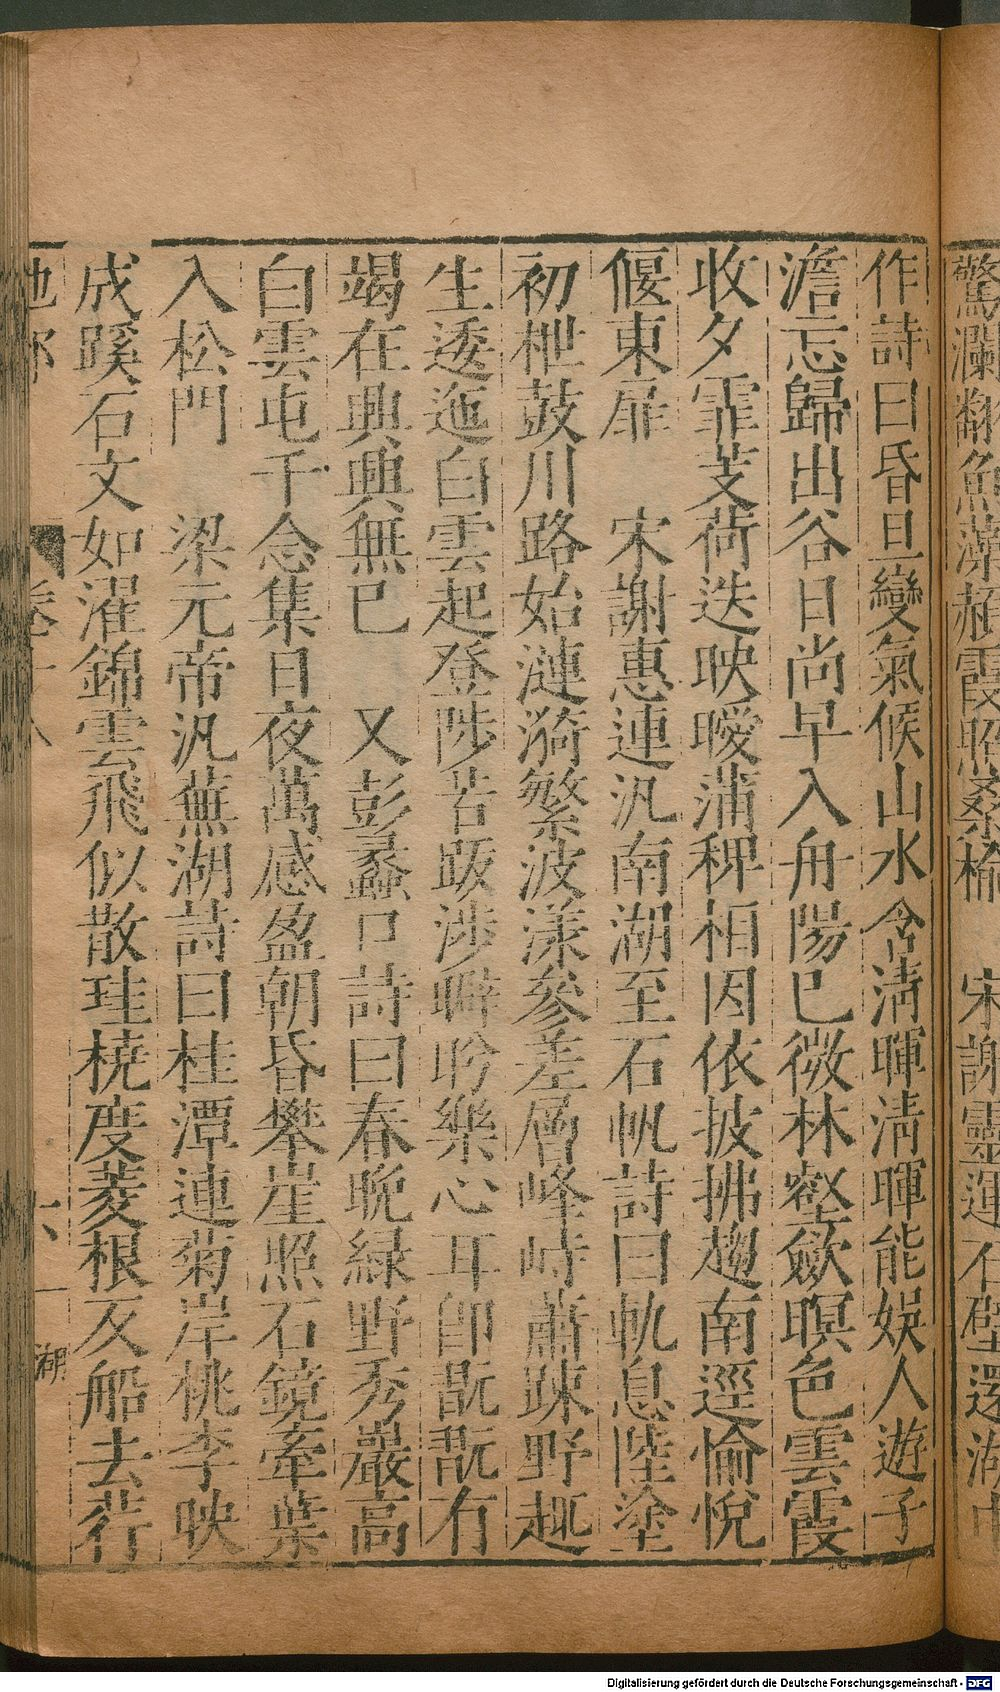 驚瀾翻魚藻赬霞照桑榆　宋謝靈運石壁還湖中
作詩曰昏旦變氣候山水含淸暉淸暉能娛人遊子
澹忘歸出谷日尚早入舟陽已微林壑斂暝色雲霞
收夕霏芰荷迭映曖蒲稗相因依披拂趨南逕愉悅
偃東扉　宋謝惠連汎南湖至石帆詩曰軌息陸塗
初枻鼓川路始漣漪繁波漾參差層峰峙蕭踈野趣
生逶迤白雲起登陟苦跋涉睥盻樂心耳卽翫翫有
竭在興興無已　又彭蠡口詩曰春晚綠野秀巖高
白雲屯千念集日夜萬感盈朝昏攀崖照石鏡牽葉
入松門　梁元帝汎蕪湖詩曰桂潭連菊岸桃李映
成蹊石文如濯錦雲飛似散珪橈度菱根反船去荇
地部
卷十八
六
湖
Digitalisierung gefördert durch die Deutsche Forschungsgemeinschaft - DFG